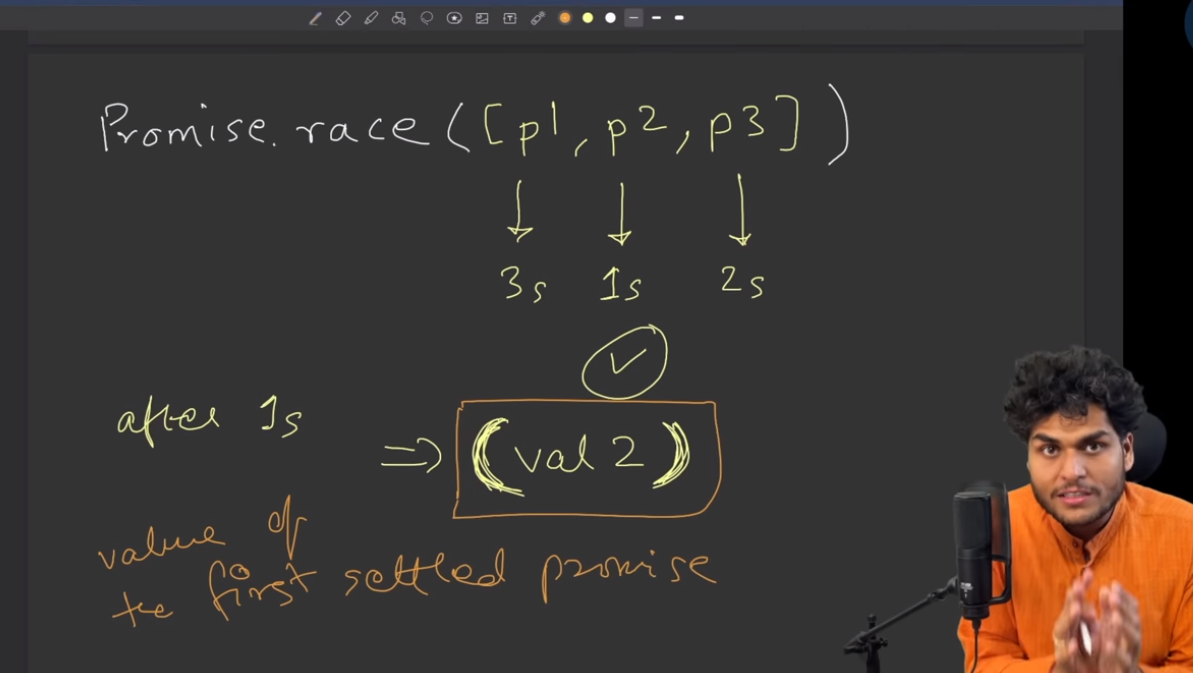 Promise.race([p1, p2, p3])
3s 1s 2s
after 1s
⇒ (val 2)
value of
the first settled promise